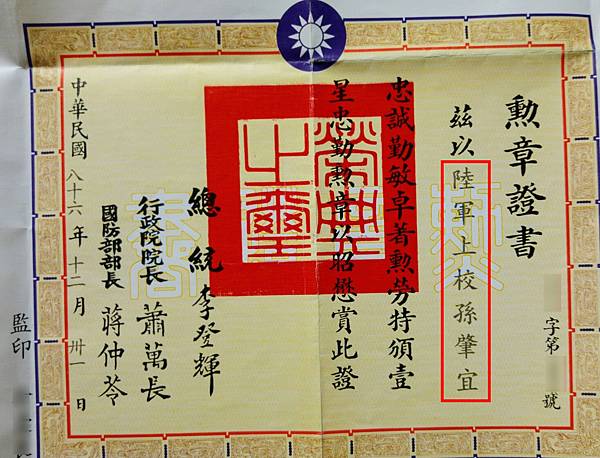 勳章證書
字第 號
茲以陸軍上校孫肇宜
忠誠勤敏卓著勳勞特頒壹
星忠勤勳章以昭懋賞此證
榮典
之璽
總統 李登輝
行政院院長 蕭萬長
國防部部長 蔣仲苓
中華民國八十六年十二月卅一日
監印